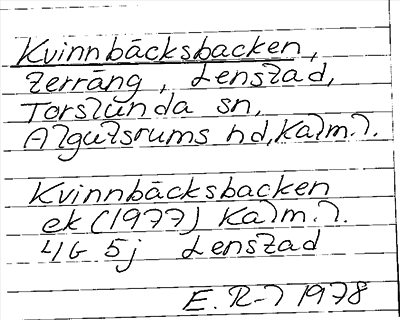 Kvinnbäcksbacken,
terräng, Lenstad,
Torslunda sn,
Algutsrums hd, Kalm. l.
Kvinnbäcksbacken
ek (1977) Kalm. l.
4G 5j Lenstad
E. R-l 1978